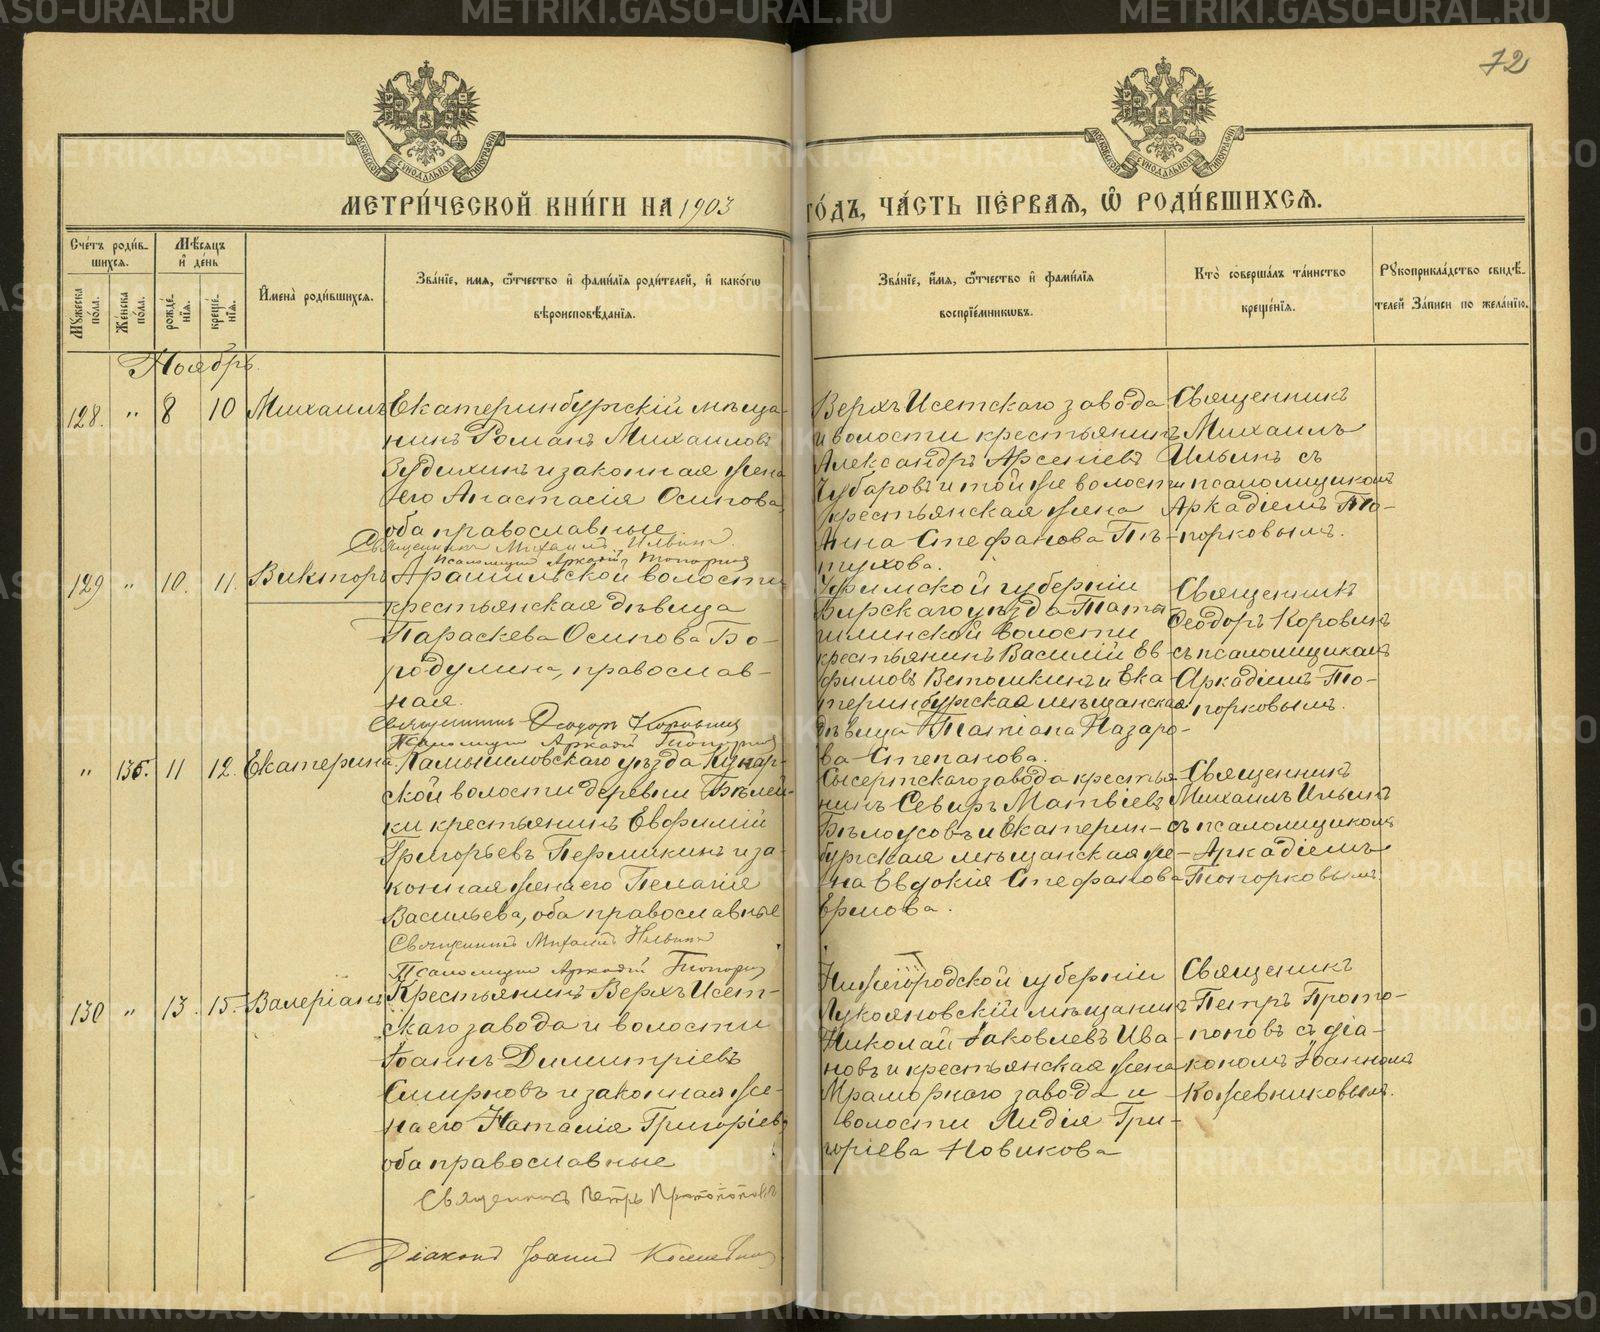 72
МОСКОВСКОЙ СѴНОДАЛЬНОЙ ТИПОГРАФІИ
МОСКОВСКОЙ СѴНОДАЛЬНОЙ ТИПОГРАФІИ
МЕТРИ́ЧЕСКОЙ КНИ́ГИ НА 1903
ГО́ДЪ, ЧА́СТЬ ПЕ́РВАѦ, Ѡ РОДИ́ВШИХСѦ.
Сче́тъ роди́в-
шихсѧ.
Мѣ́сѧцъ
и де́нь
Мꙋ́жеска по́ла.
Же́нска по́ла.
рожде́-
нїѧ.
креще́-
нїѧ.
Имена̀ роди́вшихсѧ.
Зва́нїе, имѧ, ѻ҆тчество и фами́лїѧ роди́телей, и како́гѡ
вѣроисповѣ́данїѧ.
Зва́нїе, имѧ, ѻ҆тчество и фами́лїѧ
воспрїе́мникѡвъ.
Кто̀ соверша́лъ та́инство
креще́нїѧ.
Рꙋкоприкла́дство свидѣ́-
телей за́писи по жела́нїю.
Ноябрь.
128. " 8 10 Михаилъ
Екатеринбургскій мѣща-
нинъ Романъ Михаиловъ
Зудихинъ и законная жена
его Анастасія Осипова,
оба православные
Священникъ Михаилъ Ильинъ.
Псаломщикъ Аркадій Топорковъ
Верхъ Исетскаго завода
и волости крестьянинъ
Александръ Арсеніевъ
Чубаровъ и той же волости
крестьянская жена
Анна Стефанова Пѣ-
тухова.
Священникъ
Михаилъ
Ильинъ съ
псаломщикомъ
Аркадіемъ То-
порковымъ.
129 " 10. 11. Викторъ
Арамильской волости
крестьянская дѣвица
Параскева Осипова Бо-
родулина, православ-
ная.
Священникъ Ѳеодоръ Коровинъ
Псаломщикъ Аркадій Топорковъ
Уфимской губерніи
Бирскаго уѣзда
волости
крестьянинъ Василій Ев-
фимовъ Ветошкинъ и Ека-
теринбургская мѣщанская
дѣвица Татіана Назаро-
ва Степанова.
Священникъ
Ѳеодоръ Коровинъ
съ псаломщикомъ
Аркадіемъ То-
порковымъ.
" 135. 11 12. Екатерина
Камышловскаго уѣзда Кунар-
ской волости деревни Бѣлей-
ки крестьянинъ Евфимій
Григорьевъ Пермикинъ и за-
конная жена его Пелагія
Васильева, оба православные
Священникъ Михаилъ Ильинъ
Псаломщикъ Аркадій Топорковъ
Сысертскаго завода крестья-
нинъ Северъ Матвіевъ
Бѣлоусовъ и Екатерин-
бургская мѣщанская же-
на Евдокія Стефанова
Ермова.
Священникъ
Михаилъ Ильинъ
съ псаломщикомъ
Аркадіемъ
Топорковымъ.
130 " 13. 15. Валеріанъ
Крестьянинъ Верхъ Исет-
скаго завода и волости
Іоаннъ Димитріевъ
Смирновъ и законная же-
на его Наталія Григоріева
оба православные
Священникъ Петръ Протопоповъ
Діаконъ Іоаннъ Кожевниковъ
Нижегородской губерніи
Лукояновскій мѣщанинъ
Николай Іаковлевъ Ива-
новъ и крестьянская жена
Мраморнаго завода и
волости Лидія Гри-
горіева Новикова
Священикъ
Петръ Прото-
поповъ съ діа-
кономъ Іоанномъ
Кожевниковымъ.